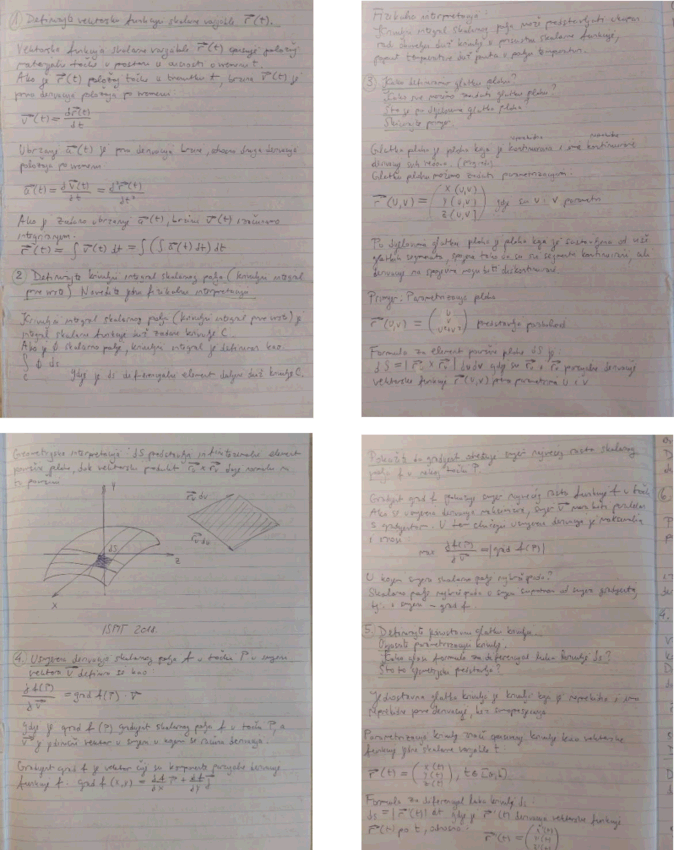 ① Definirajte vektorsku funkciju skalarne varijable r(t).
Vektorska funkcija skalarne varijable r(t) opisuje položaj
materijalne točke u prostoru u ovisnosti o vremenu t.
Ako je r(t) položaj točke u trenutku t, brzina r(t) je
prva derivacija položaja po vremenu:
v(t) = dr(t)/dt
Ubrzanje a(t) je prva derivacija brzine, odnosno druga derivacija
položaja po vremenu:
a(t) = dv(t)/dt = d²r(t)/dt²
Ako je zadano ubrzanje a(t), brzinu v(t) računamo
integriranjem:
r(t) = ∫ v(t) dt = ∫(∫ a(t) dt) dt
② Definirajte krivuljni integral skalarnog polja (krivuljni integral
prve vrste). Navedite fizikalnu interpretaciju
Krivuljni integral skalarnog polja (krivuljni integral prve vrste) je
integral skalarne funkcije duž zadane krivulje C.
Ako je φ skalarno polje, krivuljni integral je definiran kao:
∫ φ ds
c gdje je ds diferencijalni element duljine duž krivulje C.
Fizikalna interpretacija:
Krivuljni integral skalarnog polja može predstavljati ukupan
rad duž krivulje u prisustvu skalarne funkcije,
poput temperature duž puta u polju temperature.
③ Kako definiramo glatku plohu?
Kako možemo zadati glatku plohu?
Što je po dijelovima glatka ploha?
Skicirajte primjer.
Glatka ploha je ploha koja je kontinuirana i ima kontinuirane
derivacije
Glatku plohu možemo zadati parametrizacijom:
r(u,v) = (x(u,v) y(u,v) z(u,v)) gdje su u i v parametri
Po dijelovima glatka ploha je ploha koja je sastavljena od više
glatkih segmenata, spojna točka su svi segmenti kontinuirani, ali
derivacije na spojevima mogu biti diskontinuirane
Primjer: Parametrizacija plohe
r(u,v) = (u v u²+v²) predstavlja paraboloid.
Formula za element površine plohe dS je:
dS = |r_u × r_v| du dv gdje su r_u i r_v parcijalne derivacije
vektorske funkcije r(u,v) po parametrima u i v.
Geometrijska interpretacija: dS predstavlja infinitezimalni element
površine plohe, dok vektorski produkt r_u × r_v daje normalu na
tu površinu
y
r_v dv
dS
z
r_u du
x
ISMT 2011.
4. Usmjerena derivacija skalarnog polja f u točki P u smjeru
vektora v definira se kao:
df(P)/dv = grad f(P) · v
Gdje je grad f(P) gradijent skalarnog polja f u točki P, a
v je jedinični vektor u smjeru u kojem se računa derivacija.
Gradijent grad f je vektor čije su komponente parcijalne derivacije
funkcije f: grad f(x,y) = df/dx i + df/dy j
Dokažite da gradijent određuje smjer najvećeg rasta skalarnog
polja f u nekoj točki P.
Gradijent grad f pokazuje smjer najvećeg rasta funkcije f u točki
Ako je usmjerena derivacija maksimalna, smjer v mora biti paralelan
s gradijentom. U tom slučaju usmjerena derivacija je maksimalna
i iznosi:
max df(P)/dv = |grad f(P)|
U kojem smjeru skalarno polje najbrže pada?
Skalarno polje najbrže pada u smjeru suprotnom od smjera gradijenta,
tj. u smjeru - grad f
5. Definirajte jednostavnu glatku krivulju.
Opišite parametrizaciju krivulje.
Kako glasi formula za diferencijal luka krivulje ds?
Što to geometrijski predstavlja?
Jednostavna glatka krivulja je krivulja koja je neprekidna i ima
neprekidne prve derivacije, bez samopresjeka
Parametrizacija krivulje znači opisivanje krivulje kroz vektorsku
funkciju jedne skalarne varijable t:
r(t) = (x(t) y(t) z(t)), t ∈ [a,b]
Formula za diferencijal luka krivulje ds:
ds = |r'(t)| dt gdje je r'(t) derivacija vektorske funkcije
r(t) po t, odnosno: r(t) = (x(t) y(t) z(t))